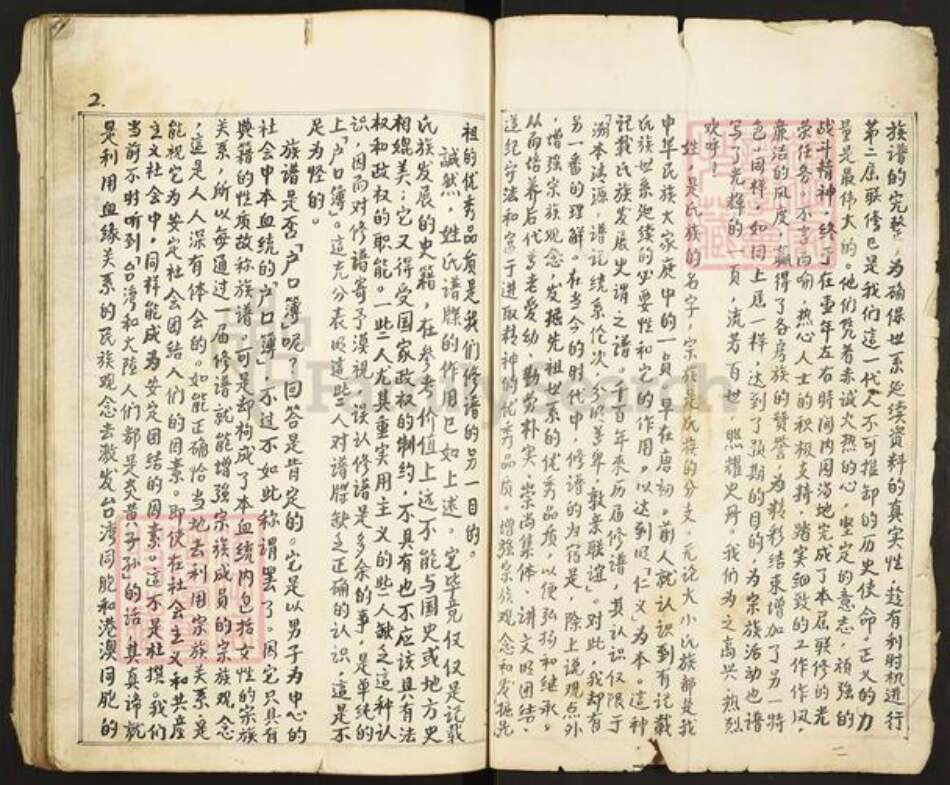 族谱的完整，为确保世系延续资料的真实性，趁有利时机进行
第二届联修已是我们這一代人不可推卸的历史使命。正义的力
量是最伟大的。他们凭着赤诚火热的心，坚定的意志，顽强的
战斗精神，终于在壹年左右時间内圆满地完成了本届联修的光
荣任务。不言而喻，热心人士的积极支持，踏实细致的工作作风，
廉洁的风度，赢得了各房族的赞誉，为精彩结束增加了另一特
色，同样，如同上届一样，达到了预期的目的，为宗族活动也谱
写了光輝的一頁，流芳百世，照耀史册。我们为之高兴，热烈
欢呼。
姓，是氏族的名字，宗族是氏族的分支。无论大小氏族都是我
中华民族大家庭中的一员。早在唐初，前人就认识到有记載
氏族世系延续的必要性和它的作用，以达到昭「仁义」为本。這种
记载氏族发展史谓之谱。千百年来，历届修谱，其认识仅限于
「溯本清源，谱記统系伦次，分明尊卑，敦亲联谊」。对此，我却有
另一番的理解。在当今的時代中，修谱的为宿是，除上说观点外
，增强宗族观念，发掘先祖世系的优秀品质，以便弘扬和继承。
从而培养后代尊老爱幼、勤劳朴实、崇尚集体、讲文明团结、
遵纪守法和富于进取精神的优秀品质。增强宗族观念和发掘先
2.
祖的优秀品质是我们修谱的另一目的。
誠然，姓氏谱牒的作用已如上述。它毕竟仅仅是记載
氏族发展的史籍，在参考价值上远不能与国史或地方史
相媲美；它又得受国家政权的制约，不具有也不应该具有法
权和政权的职能。一些人尤其重实用主义的些人缺乏這种认
识，因而对修谱寄予漠视，误认修谱是多余的事，是单纯的
上「户口簿」。這充分表明這些人对谱牒缺乏正确的认识，這是不
足为怪的。
族谱是否「户口簿」呢，回答是肯定的。它是以男子为中心的
社会中本血统的「户口簿」，不过不如此称谓罢了。因它只具有
典籍的性质故称族谱，可是却构成了本血统内包括女性的宗族
关系，所以每通过一届修谱就能增强宗族成員的宗族观念
，這是人人深有体会的。如能正确恰当地去利用宗族关系是
能视它为安定社会团结人们的因素。即使在社会主义和共產
主义社会中，同样能成为安定团结的因素。這不是杜撰。我们
当前不時听到「台湾和大陸人们都是炎黄子孙」的话，其真諦就
是利用血缘关系的民族观念去激发台湾同胞和港澳同胞的
FamilySearch